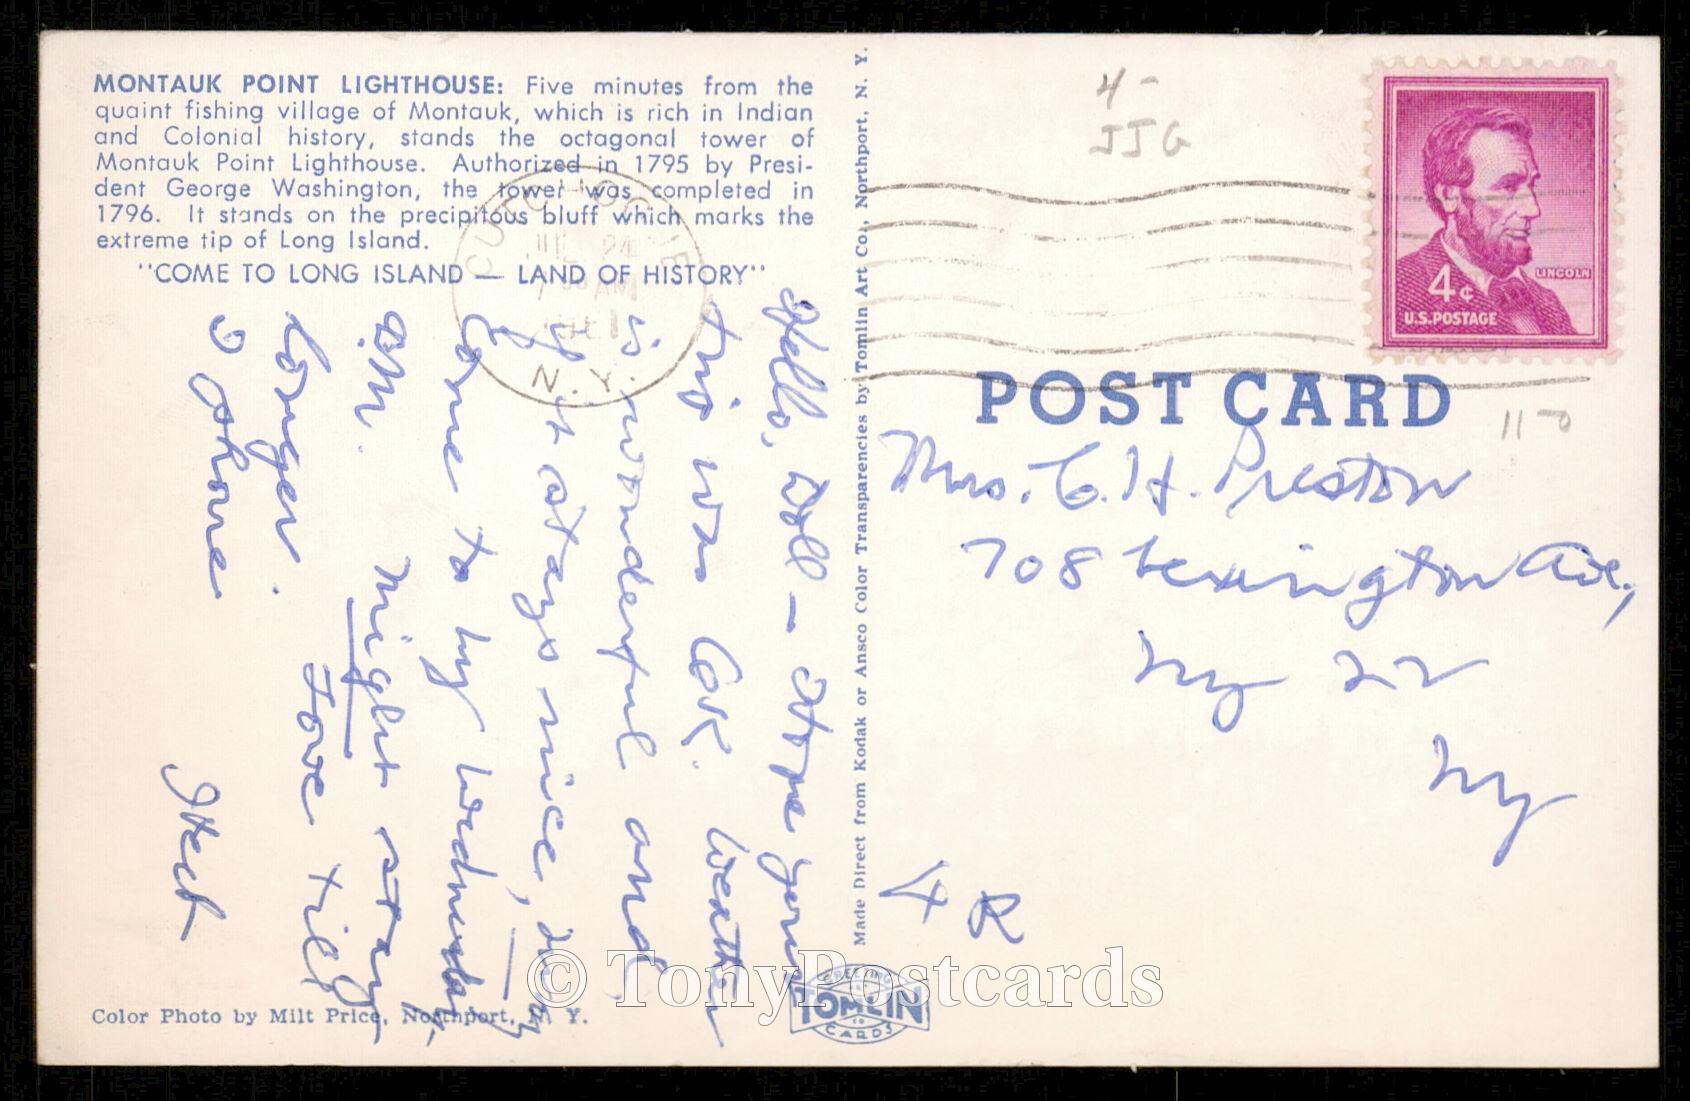 MONTAUK POINT LIGHTHOUSE: Five minutes from the
quaint fishing village of Montauk, which is rich in Indian
and Colonial history, stands the octagonal tower of
Montauk Point Lighthouse. Authorized in 1795 by Presi-
dent George Washington, the tower was completed in
1796. It stands on the precipitous bluff which marks the
extreme tip of Long Island.
"COME TO LONG ISLAND — LAND OF HISTORY"
Hello, Doll – Hope your
trip was O.K. Weather
is wonderful and
if it stays nice, may
come to by Wednesday
a.m. Might stay
longer. Love till
I phone
Color Photo by Milt Price, Northport, N. Y.
Made Direct from Kodak or Ansco Color Transparencies by Tomlin Art Co., Northport, N. Y.
GREETING
TOMLIN
CARDS
4 -
JJG
N.Y.
LINCOLN
4¢
U.S. POSTAGE
POST CARD
11-0
Mrs. C. H. Preston
708 Lexington Ave.,
NY 22
NY
4 R
© TonyPostcards